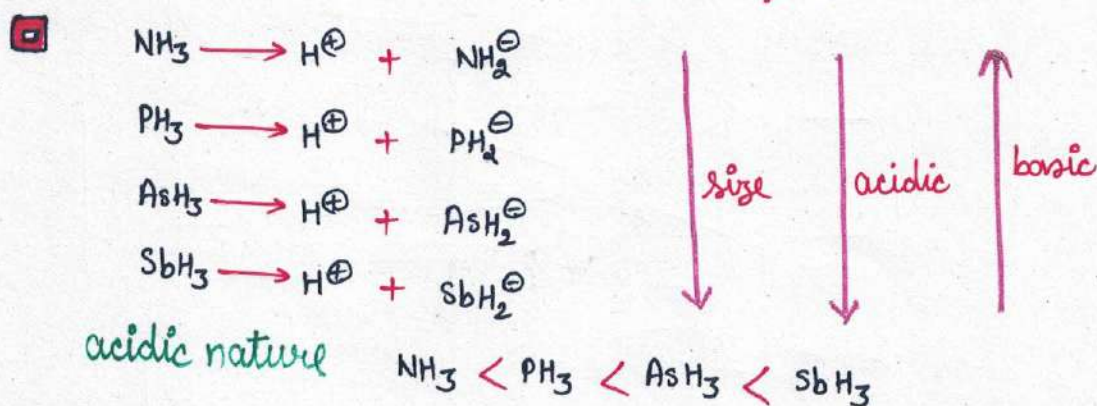 NH₃ ⟶ H⊕ + NH₂⊖
PH₃ ⟶ H⊕ + PH₂⊖
AsH₃ ⟶ H⊕ + AsH₂⊖
SbH₃ ⟶ H⊕ + SbH₂⊖
size
acidic
basic
acidic nature NH₃ < PH₃ < AsH₃ < SbH₃